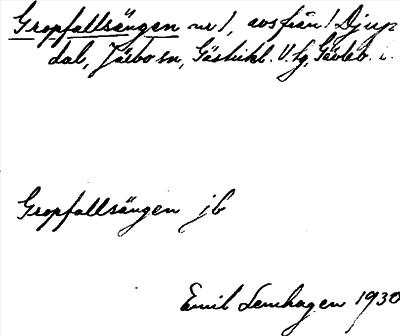 Gropfallsängen nr 1, avs från 1 Djup
dal, Järbo sn, Gästrikl. V. lg, Gävleb. l.
Gropfallsängen jb
Emil Lenhagen 1930